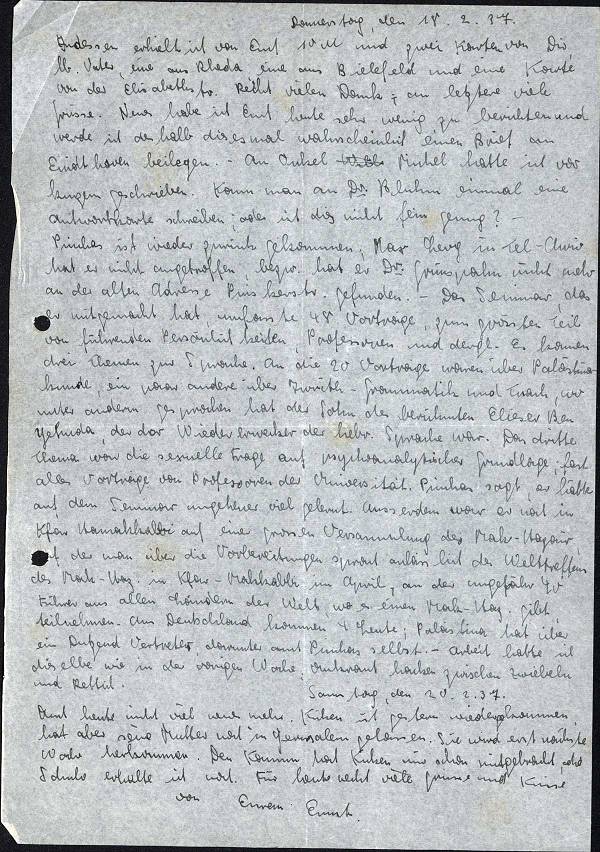 Donnerstag, den 18. 2. 37.
Indessen erhielt ich von Euch 10 M und zwei Karten von Dir
lb. Vater, eine aus Rheda eine aus Bielefeld und eine Karte
von der Elisabethstr. Recht vielen Dank; an letztere viele
Grüsse. Neues habe ich Euch heute sehr wenig zu berichten und
werde ich deshalb diesmal wahrscheinlich einen Brief an
Eindhoven beilegen. - An Onkel Michel hatte ich vor
kurzem geschrieben. Kann man an Dr. Bluhm einmal eine
Antwortkarte schreiben, oder ist das nicht fein genug? -
Pinchas ist wieder zurück gekommen; Max in Tel-Awiw
hat er nicht angetroffen, bezw. hat er Dr. Grünspahn nicht mehr
an der alten Adresse Pinskerstr. gefunden. - Das Seminar, das
er mitgemacht hat, umfasste 48 Vorträge, zum grössten Teil
von führenden Persönlichkeiten, Professoren und dergl. Es kamen
drei Themen zur Sprache. An die 20 Vorträge waren über Palästina-
kunde, ein paar andere über Iwrith-Grammatik und Tnach, wo
unter andern gesprochen hat der Sohn des berühmten Elieser Ben
Yehuda, der der Wiedererwecker der hebr. Sprache war. Das dritte
Thema war die sexuelle Frage auf psychoanalytischer Grundlage, fast
alles Vorträge von Professoren der Universität. Pinchas sagt, er hätte
auf dem Seminar ungeheuer viel gelernt. Ausserdem war er noch in
Kfar Hamakkabi auf einer grossen Versammlung des Mak-Hazair,
auf der man über die Vorbereitungen sprach anlässlich des Welttreffens
des Mak-Haz. in Kfar-Makkabi im April, an der ungefähr 40
Führer aus allen Ländern der Welt, wo es einen Mak-Haz. gibt,
teilnehmen. Aus Deutschland kommen 4 Leute; Palästina hat über
ein Dutzend Vertreter, darunter auch Pinchas selbst. - Arbeit hatte ich
dieselbe wie in der vorigen Woche: Unkraut hacken zwischen Zwiebeln
und Rettich.
Samstag, den 20. 2. 37.
Auch heute nicht viel neues mehr. Kuhen ist gestern wiedergekommen,
hat aber seine Mutter noch in Jerusalem gelassen. Sie wird erst nächste
Woche herkommen. Den Kamm hat Kuhen mir schon mitgebracht, die
Schuhe erhalte ich noch. Für heute recht viele Grüsse und Küsse
von Eurem Ernst.